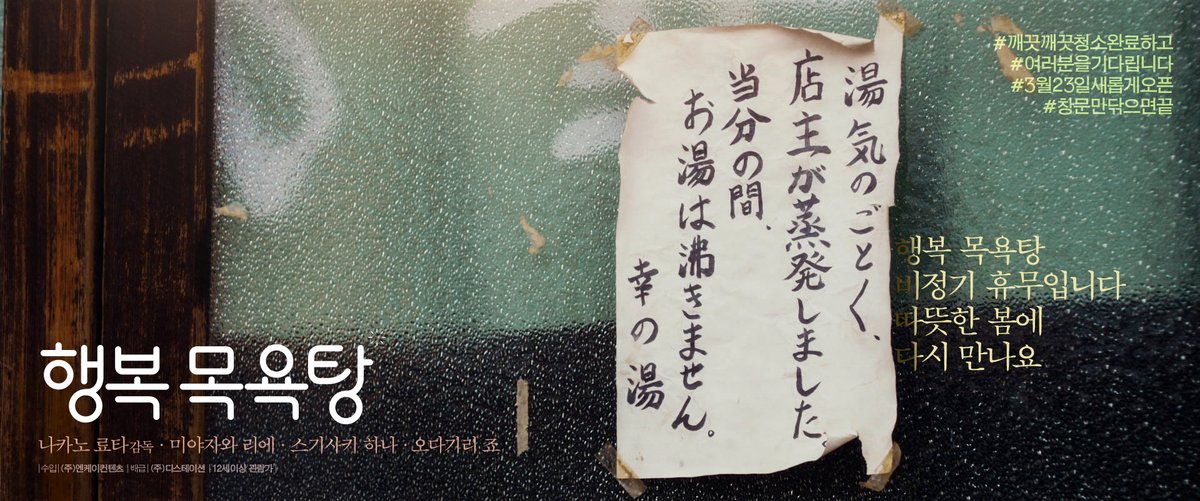 #깨끗깨끗청소완료하고
#여러분을기다립니다
#3월23일새롭게오픈
#창문만닦으면끝
湯気のごとく、
店主が蒸発しました。
当分の間、
お湯は沸きません。
幸の湯
행복 목욕탕
비정기 휴무입니다
따뜻한 봄에
다시 만나요
행복 목욕탕
나카노 료타감독 · 미야자와 리에 · 스기사키 하나 · 오다기리 죠
|수입| (주)엔케이컨텐츠 |배급| (주)디스테이션 |12세이상 관람가|